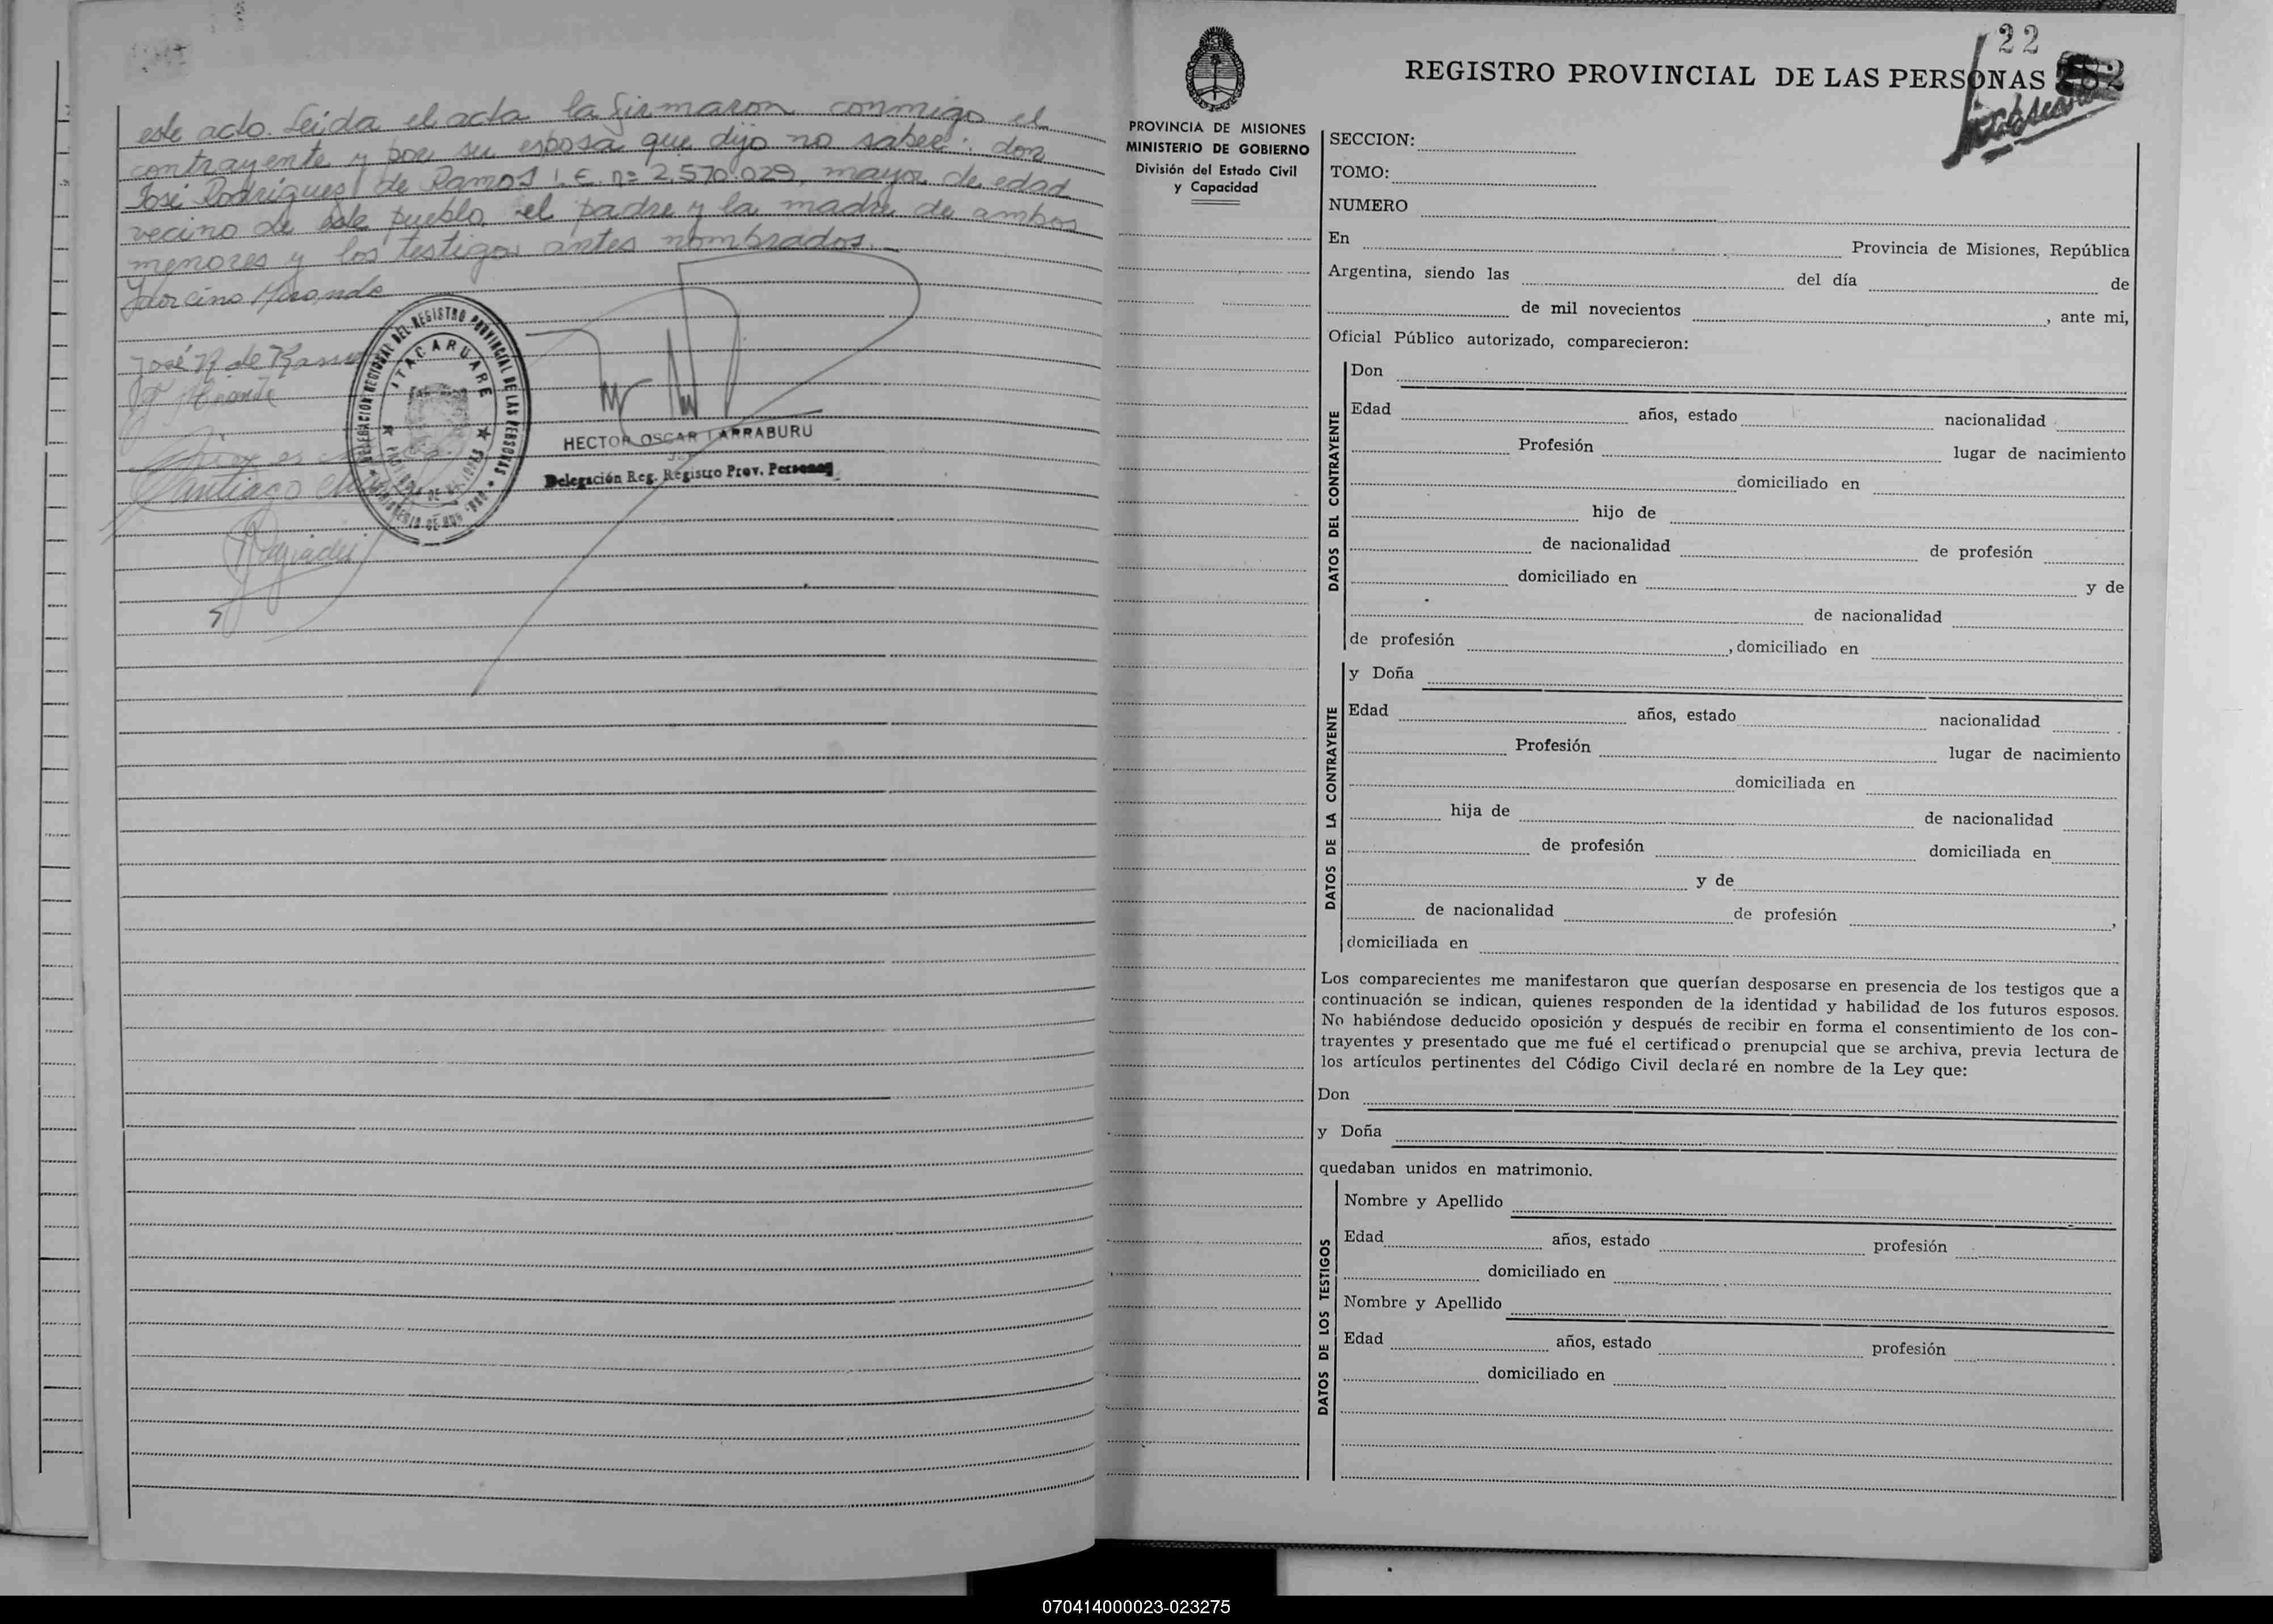 este acto. Leida el acta la firmaron conmigo el
contrayente y por su esposa que dijo no saber: don
José Rodrigues de Ramos L.E. nº 2.570.029, mayor de edad
vecino de este pueblo, el padre y la madre de ambos
menores y los testigos antes nombrados.
José R de Ramos
DELEGACION REGIONAL DEL REGISTRO PROVINCIAL DE LAS PERSONAS
ITACARUARE
HECTOR OSCAR LARRABURU
Delegación Reg. Registro Prov. Personas
Santiago
22
REGISTRO PROVINCIAL DE LAS PERSONAS 282
PROVINCIA DE MISIONES
MINISTERIO DE GOBIERNO
División del Estado Civil
y Capacidad
SECCION:
TOMO:
NUMERO
En Provincia de Misiones, República
Argentina, siendo las del día de
de mil novecientos , ante mi,
Oficial Público autorizado, comparecieron:
DATOS DEL CONTRAYENTE
Don
Edad años, estado nacionalidad
Profesión lugar de nacimiento
domiciliado en
hijo de
de nacionalidad de profesión
domiciliado en y de
de nacionalidad
de profesión , domiciliado en
DATOS DE LA CONTRAYENTE
y Doña
Edad años, estado nacionalidad
Profesión lugar de nacimiento
domiciliada en
hija de de nacionalidad
de profesión domiciliada en
y de
de nacionalidad de profesión ,
domiciliada en
Los comparecientes me manifestaron que querían desposarse en presencia de los testigos que a
continuación se indican, quienes responden de la identidad y habilidad de los futuros esposos.
No habiéndose deducido oposición y después de recibir en forma el consentimiento de los con-
trayentes y presentado que me fué el certificado prenupcial que se archiva, previa lectura de
los artículos pertinentes del Código Civil declaré en nombre de la Ley que:
Don
y Doña
quedaban unidos en matrimonio.
DATOS DE LOS TESTIGOS
Nombre y Apellido
Edad años, estado profesión
domiciliado en
Nombre y Apellido
Edad años, estado profesión
domiciliado en
070414000023-023275